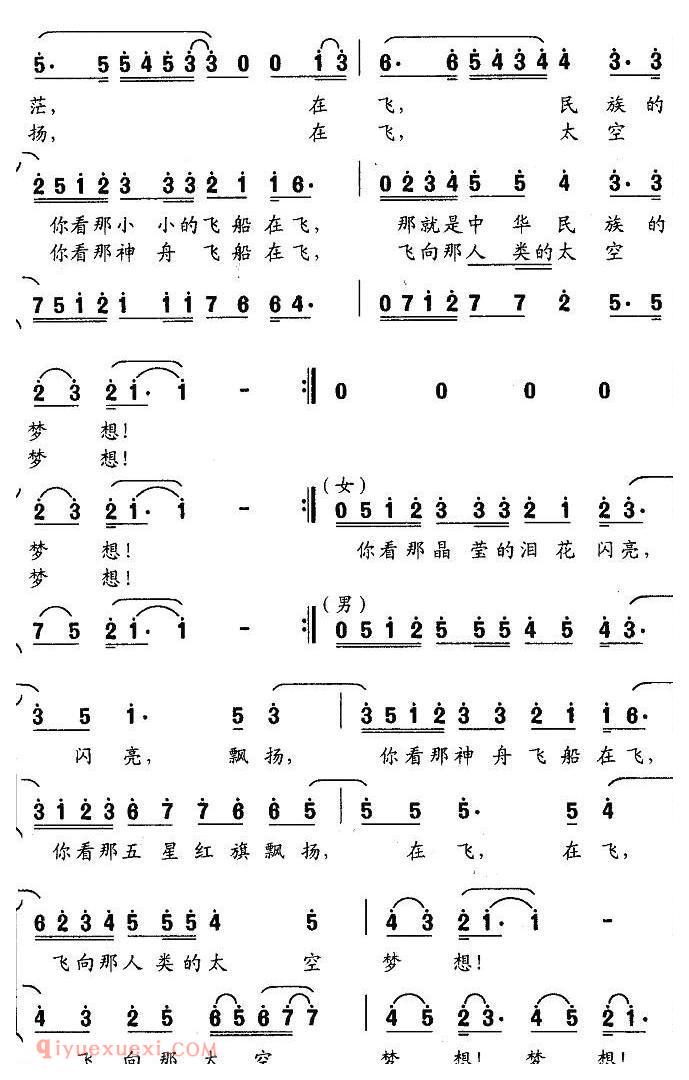 5· 5 5 4 5 3 3 0 0 1 3 | 6· 6 5 4 3 4 4 3· 3
茫, 在 飞, 民 族 的
扬, 在 飞, 太 空
2 5 1 2 3 3 3 2 1 1 6· | 0 2 3 4 5 5 4 3· 3
你看那小 小的飞船在飞, 那就是中 华 民 族 的
你看那神 舟 飞船在飞, 飞向那人 类的太 空
7 5 1 2 1 1 1 7 6 6 4· | 0 7 1 2 7 7 2 5· 5
2 3 2 1· 1 - :| 0 0 0 0
梦 想!
梦 想!
(女)
2 3 2 1· 1 - :| 0 5 1 2 3 3 3 2 1 2 3·
梦 想! 你看那晶 莹的泪 花 闪亮,
梦 想!
(男)
7 5 2 1· 1 - :| 0 5 1 2 5 5 5 4 5 4 3·
3 5 1· 5 3 | 3 5 1 2 3 3 2 1 1 6·
闪 亮, 飘 扬, 你看那神 舟 飞 船 在飞,
3 1 2 3 6 7 7 6 6 5 | 5 5 5· 5 4
你看那五 星 红 旗 飘 扬, 在 飞, 在 飞,
6 2 3 4 5 5 5 4 5 | 4 3 2 1· 1 -
飞向那人 类的太 空 梦 想!
4 3 2 5 6 5 6 7 7 | 4 6 2 3· 4 5 2 1·
飞 向 那 太 空 梦 想! 梦 想!
qiyuexuexi.com